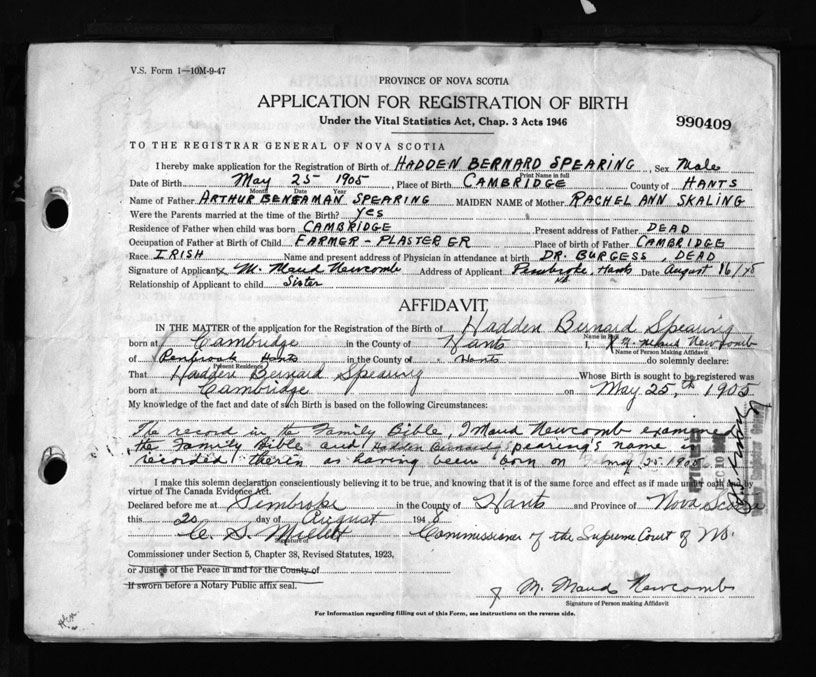 V.S. Form 1—10M-9-47
PROVINCE OF NOVA SCOTIA
APPLICATION FOR REGISTRATION OF BIRTH
Under the Vital Statistics Act, Chap. 3 Acts 1946
990409
TO THE REGISTRAR GENERAL OF NOVA SCOTIA
I hereby make application for the Registration of Birth of HADDEN BERNARD SPEARING, Sex Male
Print Name in full
Date of Birth May 25 1905, Place of Birth CAMBRIDGE County of HANTS
Month Date Year
Name of Father ARTHUR BENEAMAN SPEARING MAIDEN NAME of Mother RACHEL ANN SKALING
Were the Parents married at the time of the Birth? yes
Residence of Father when child was born CAMBRIDGE Present address of Father DEAD
Occupation of Father at Birth of Child FARMER - PLASTERER Place of birth of Father CAMBRIDGE
Race IRISH Name and present address of Physician in attendance at birth DR. BURGESS, DEAD
Signature of Applicant M. Maud Newcomb Address of Applicant Pembroke, Hants Date August 16/48
Relationship of Applicant to child Sister
AFFIDAVIT
IN THE MATTER of the application for the Registration of Birth of Hadden Bernard Spearing
Name in full
born at Cambridge in the County of Hants I, M. Maud Newcomb
Name of Person Making Affidavit
of Penbrook Hants in the County of Hants do solemnly declare:
Present Residence
That Hadden Bernard Spearing Whose Birth is sought to be registered was
born at Cambridge on May 25,th 1905
My knowledge of the fact and date of such Birth is based on the following Circumstances:
The record in the Family Bible, I Maud Newcomb examined
the Family Bible and Hadden Bernard Spearing's name is
recorded therein as having been born on May 25 1905
I make this solemn declaration conscientiously believing it to be true, and knowing that it is of the same force and effect as if made under oath by
virtue of The Canada Evidence Act.
Declared before me at Pembroke in the County of Hants and Province of Nova Scotia
this 20 day of August 1948
C. S. Commissioner of the Supreme Court of NS.
Signature of
Commissioner under Section 5, Chapter 38, Revised Statutes, 1923,
or Justice of the Peace in and for the County of
If sworn before a Notary Public affix seal.
M. Maud Newcomb
Signature of Person making Affidavit
For Information regarding filling out of this Form, see instructions on the reverse side.